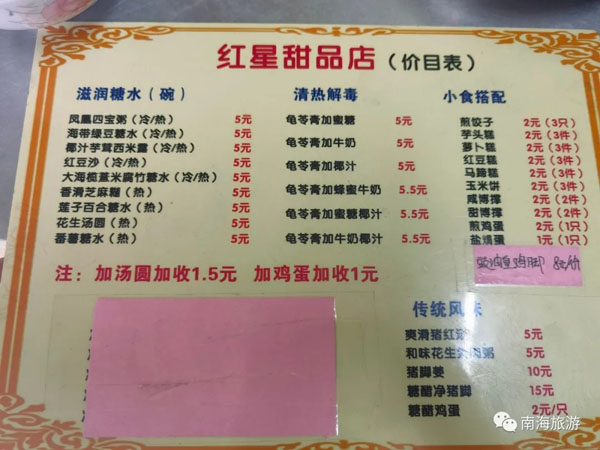 红星甜品店（价目表）
滋润糖水（碗）
凤凰四宝粥（冷/热） 5元
海带绿豆糖水（冷/热） 5元
椰汁芋茸西米露（冷/热） 5元
红豆沙（冷/热） 5元
大海榄薏米腐竹糖水（冷/热） 5元
香滑芝麻糊（热） 5元
莲子百合糖水（热） 5元
花生汤圆（热） 5元
番薯糖水（热） 5元
清热解毒
龟苓膏加蜜糖 5元
龟苓膏加牛奶 5元
龟苓膏加椰汁 5元
龟苓膏加蜂蜜牛奶 5.5元
龟苓膏加蜜糖椰汁 5.5元
龟苓膏加牛奶椰汁 5.5元
小食搭配
煎饺子 2元（3只）
芋头糕 2元（3件）
萝卜糕 2元（3件）
红豆糕 2元（3件）
马蹄糕 2元（3件）
玉米饼 2元（3件）
咸博撑 2元（2件）
甜博撑 2元（2件）
煎鸡蛋 2元（1只）
盐焗蛋 1元（1只）
豉油皇鸡脚
注：加汤圆加收1.5元 加鸡蛋加收1元
传统风味
爽滑猪红 5元
和味花生 肉粥 5元
猪脚姜 10元
糖醋净猪脚 15元
糖醋鸡蛋 2元/只
南海旅游